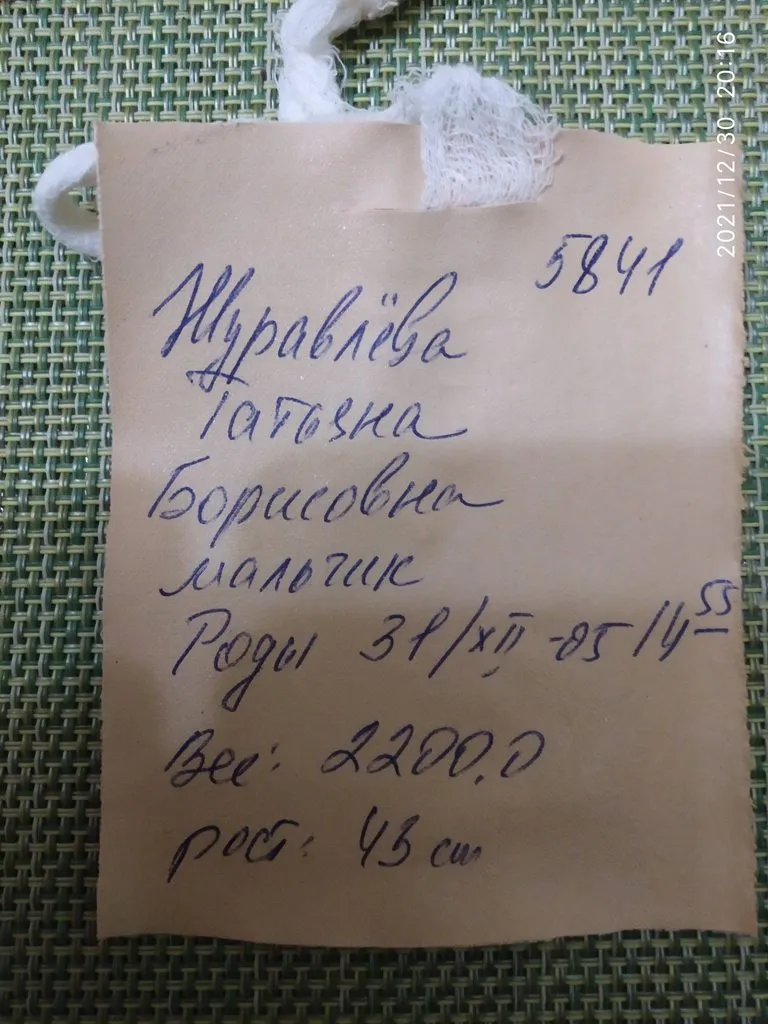 2021/12/30 20:16
5841
Журавлёва
Татьяна
Борисовна
мальчик
Роды 31/XII-85 14 55
Вес: 2200,0
рост: 43 см